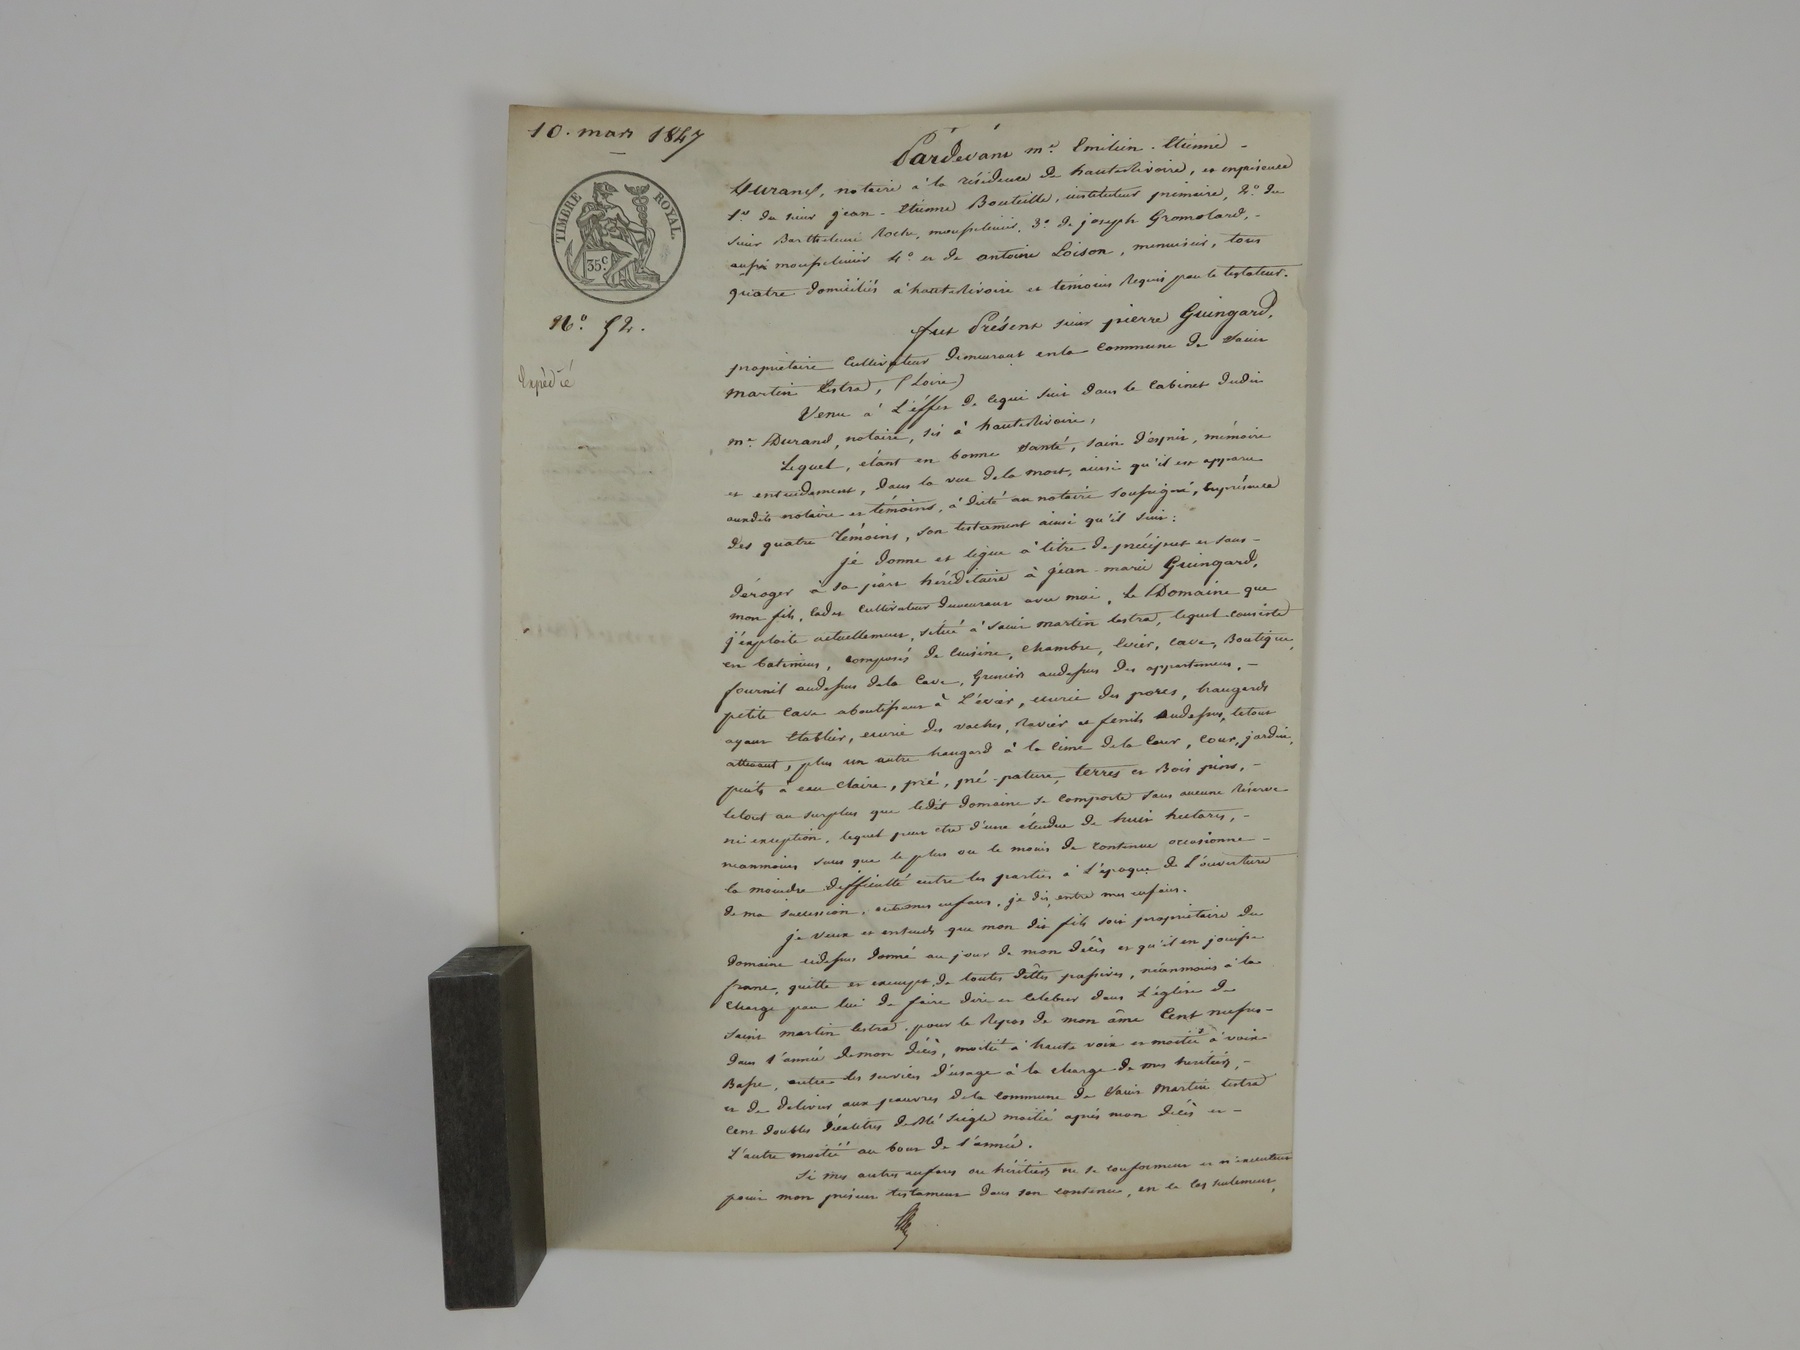 10. mars 1847
TIMBRE ROYAL.
35 c
No. 52.
Expédié
Pardevant me. Emilien. Etienne -
Durand, notaire à la résidence de hauterivoire, et en présence
1er. du sieur jean - Etienne Bouteille, instituteur primaire, 2o. du
sieur Barthelemi Roche, mousselinier, 3o. de joseph Gromolard, -
aussi mousselinier 4o. et de antoine Loison, menuisier, tous
quatre domiciliés à hauterivoire et témoins Requis par le testateur.
fut Présent sieur pierre Guingard,
propriétaire Cultivateur demeurant en la Commune de Saint
Martin Lestra, (Loire)
Venu à L'effet de ce qui suit dans le Cabinet dudit
me. Durand, notaire, sis à hauterivoire,
Lequel, étant en bonne Santé, sain d'esprit, mémoire
et entendement, dans la vue de la mort, ainsi qu'il est apparu
auxdits notaire et témoins, à dicté au notaire soussigné, en présence
des quatre témoins, son testament ainsi qu'il suit:
je donne et legue à titre de préciput et sans -
déroger à sa part héréditaire à jean marie Guingard,
mon fils, cadet cultivateur demeurant avec moi, Le Domaine que
j'exploite actuellement, situé à Saint Martin lestra, lequel consiste
en batiments, composés de Cuisine, chambre, Evier, Cave, Boutique,
fournil audessus de la Cave, Greniers audessus des appartements, -
petite Cave aboutissant à L'évier, ecurie des porcs, hangards
ayant Etablier, ecurie des vaches, Ravier et fenils audessus, letout
attenant, plus un autre hangard à la cime de la Cour, Cour, jardin,
puits à eau Claire, pré, pré-pature, terres et Bois pins, -
letout au surplus que ledit domaine se comporte sans aucune Réserve
ni exception, lequel peut être d'une étendue de huit hectares, -
neanmoins sans que le plus ou le moins de contenue occasionne -
la moindre difficulté entre les parties à l'époque de L'ouverture
de ma succession, entre mes enfans, je dis, entre mes enfans.
je veux et entends que mon dit fils soit propriétaire du
domaine cidessus donné au jour de mon décès et qu'il en jouisse
franc, quitte et exempt de toutes dettes passives, néanmoins à la
Charge par lui de faire dire et célébrer dans L'église de
Saint martin Lestra pour le Repos de mon âme Cent messes -
dans l'année de mon décès, moitié à haute voix et moitié à voix
Basse, outre les services d'usage à la charge de mes heritiers, -
et de delivrer aux pauvres de la commune de Saint Martin lestra
Cent doubles décalitres de blé seigle moitié après mon décès et -
L'autre moitié au bout de l'année.
Si mes autres enfans ou héritiers ne se conforment et n'exécutent
point mon présent testament dans son contenu, en ce cas seulement,